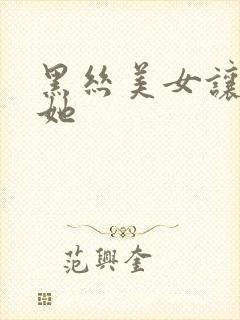 黑丝美女讓
她
范興奎